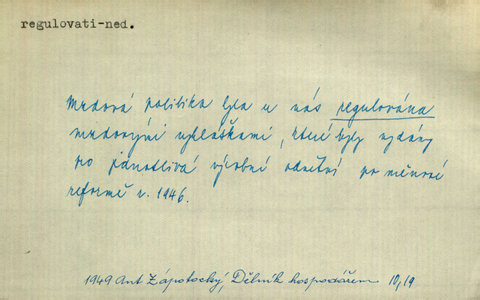 regulovati-ned.
Mzdová politika byla u nás regulována
mzdovými vyhláškami, které byly vydány
pro jednotlivá výrobní odvětví po měnové
reformě r. 1946.
1949 Ant Zápotocký, Dělník hospodářem 10,19